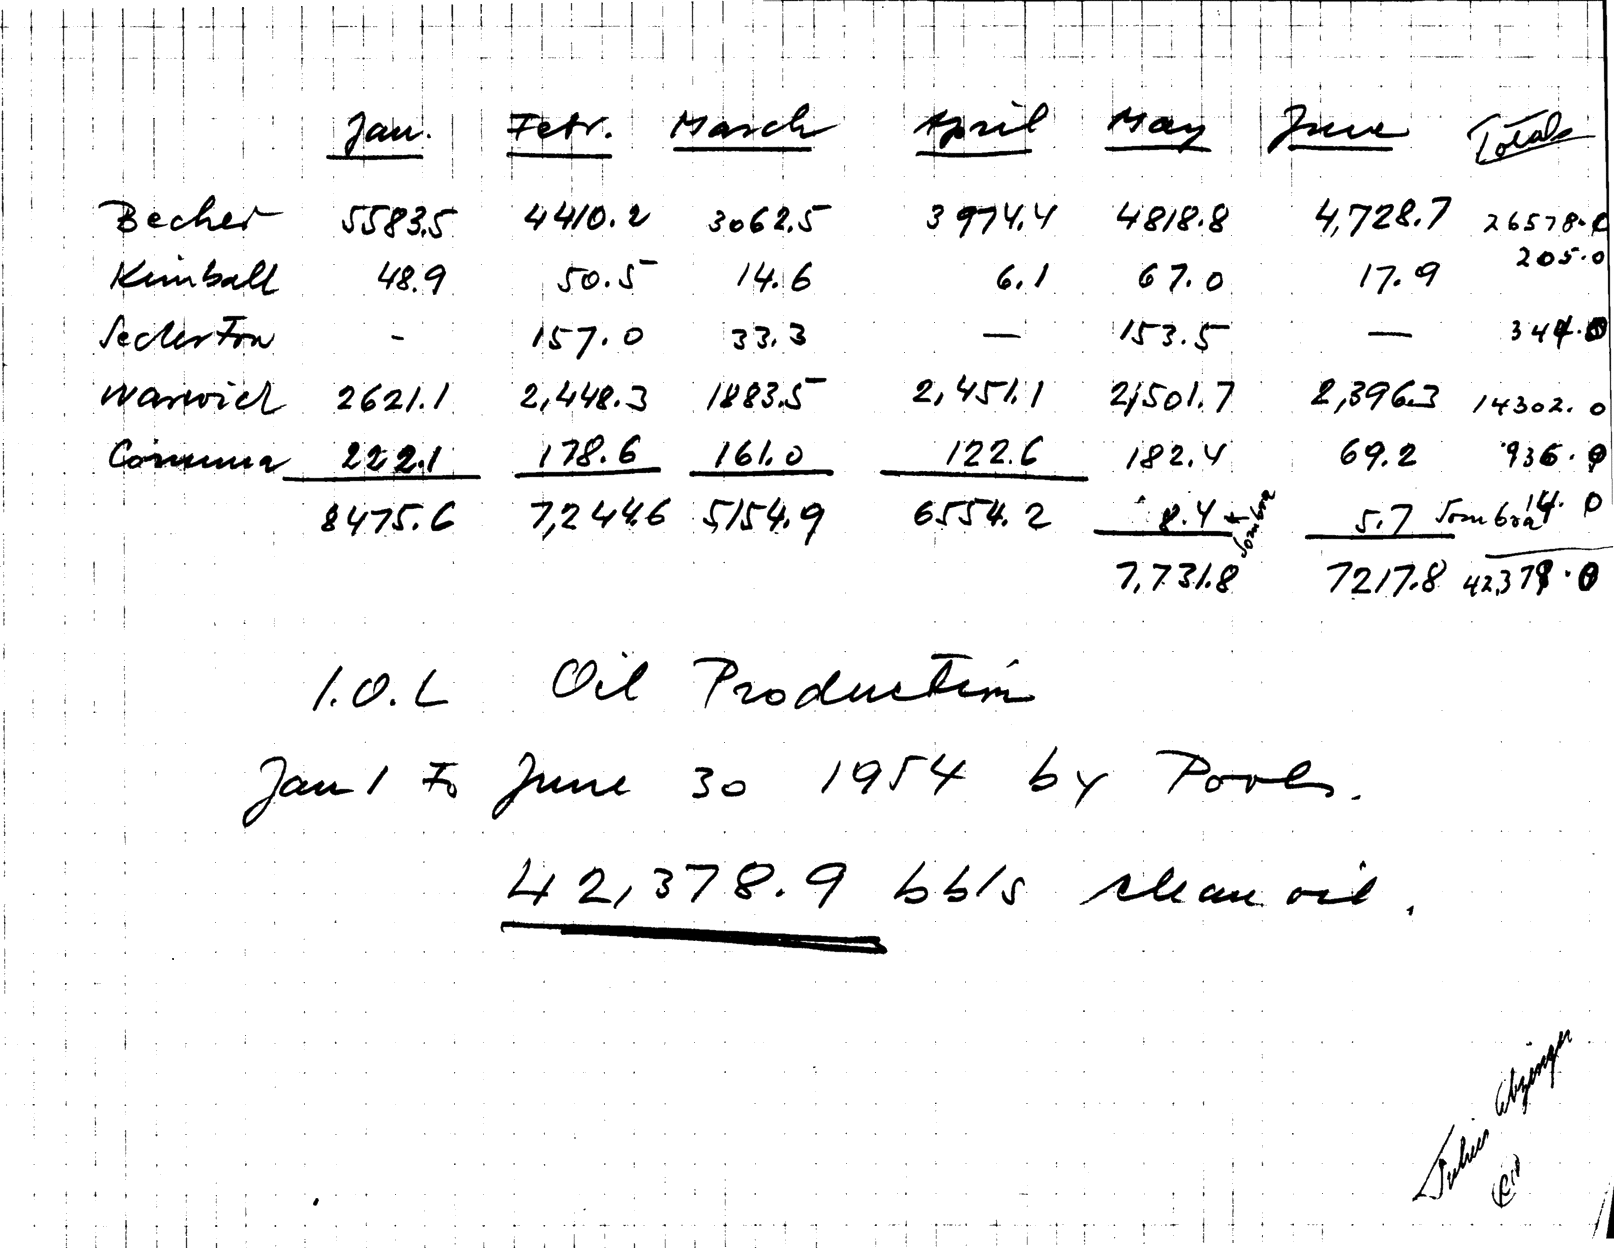 Jan. Febr. March April May June Totals
Becher 5583.5 4410.2 3062.5 3974.4 4818.8 4,728.7 26578.
Kimball 48.9 50.5 14.6 6.1 67.0 17.9 205.0
Seckerton - 157.0 33.3 — 153.5 — 344.
Warwick 2621.1 2,448.3 1883.5 2,451.1 2,501.7 2,396.3 14302.0
Corunna 222.1 178.6 161.0 122.6 182.4 69.2 936.
8475.6 7,244.6 5154.9 6554.2 8.4 ← Sombra 5.7 Sombra 14.0
7,731.8 7217.8
I.O.L Oil Production
Jan 1 to June 30 1954 by Pools.
42,378.9 bbls clean oil.
Julius